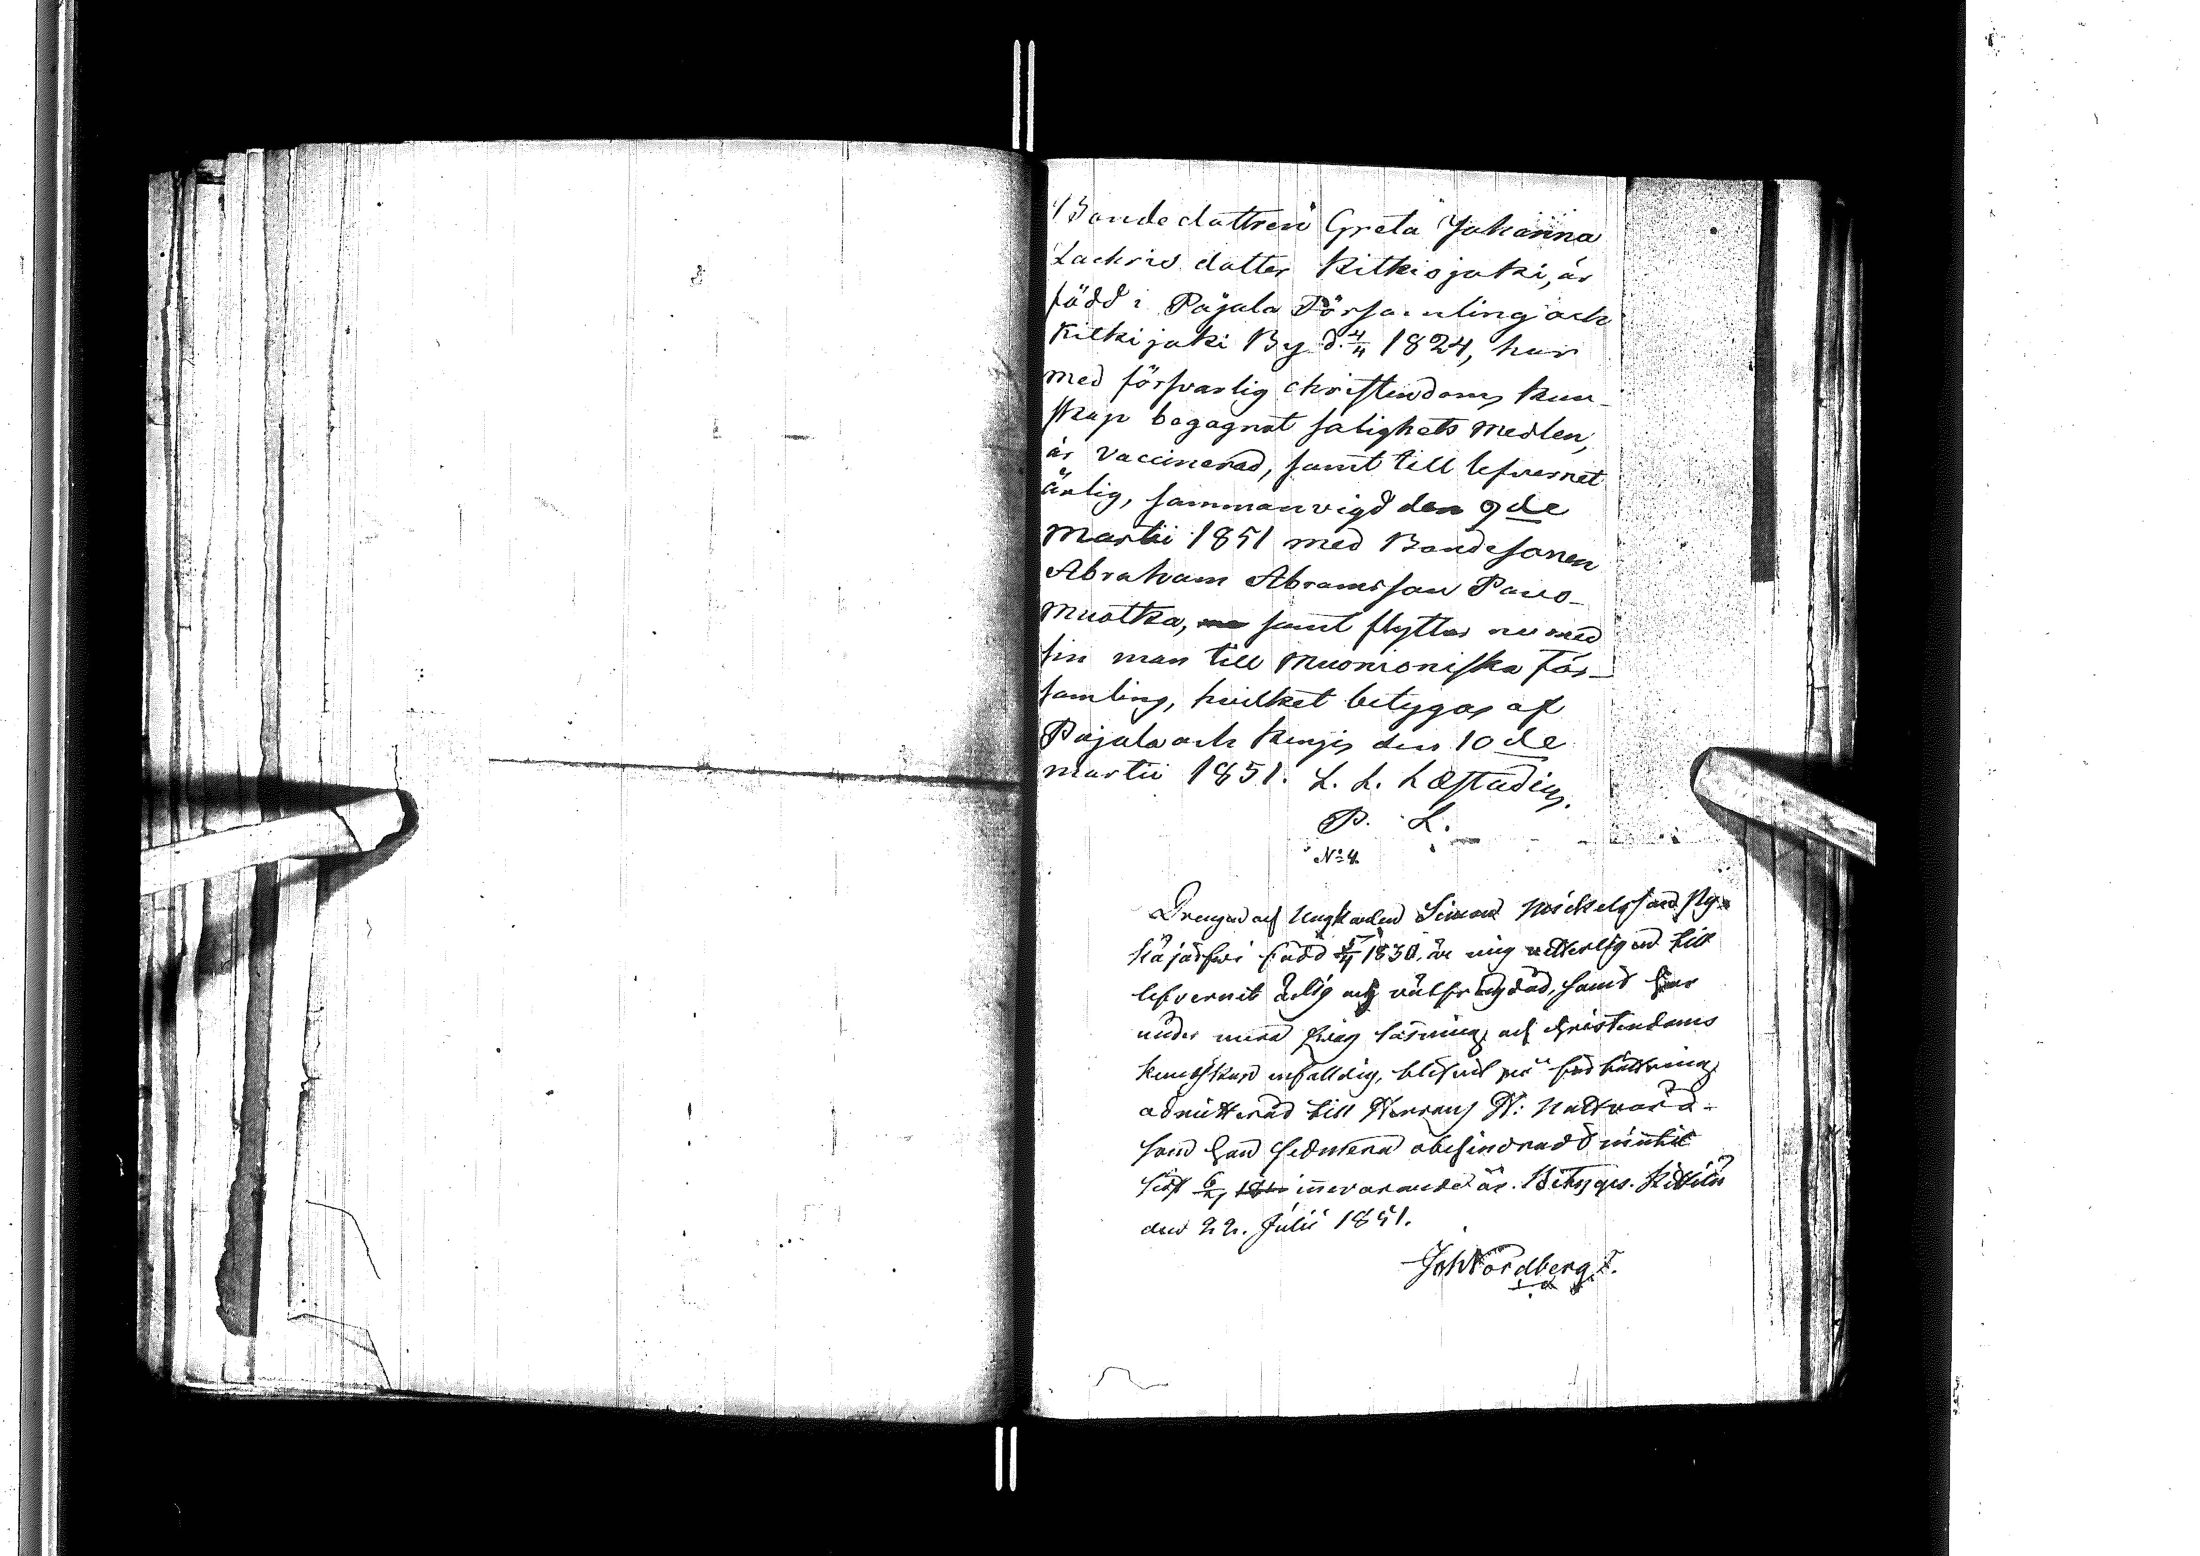 Bondedottren Greta Johanna
Zachris dotter Kitkisjoki, är
född i Pajala Församling och
Kitkijoki By d. 4/4 1824, har
med försvarlig christendoms kun-
skap begagnat salighets medlen,
är vaccinerad, samt till lefvernet
ärlig, sammanvigd den 9de
Martii 1851 med Bondesonen
Abraham Abramsson Pavo-
muotka, samt flyttar nu med
sin man till Muonioniska För-
samling, hvilket betygas af
Pajala och Kengis den 10de
martii 1851. L. L. Læstadius.
P. L.
No 4.
Drengen och Ungkarlen Simon Mickelsson Ny-
född 1830, är mig vetterligen till
lefvernet ärlig och välfrägdad, samt har
under mina läsning och Christendoms
kunskap enfalldig, blifvit på förbättring
admitterad till Herrans H: Nattvard
som han sednera obehindradt niutit
sist 6/4 innevarande år. Betygas. Kittilä
den 22. Julii 1851.
Joh Nordberg